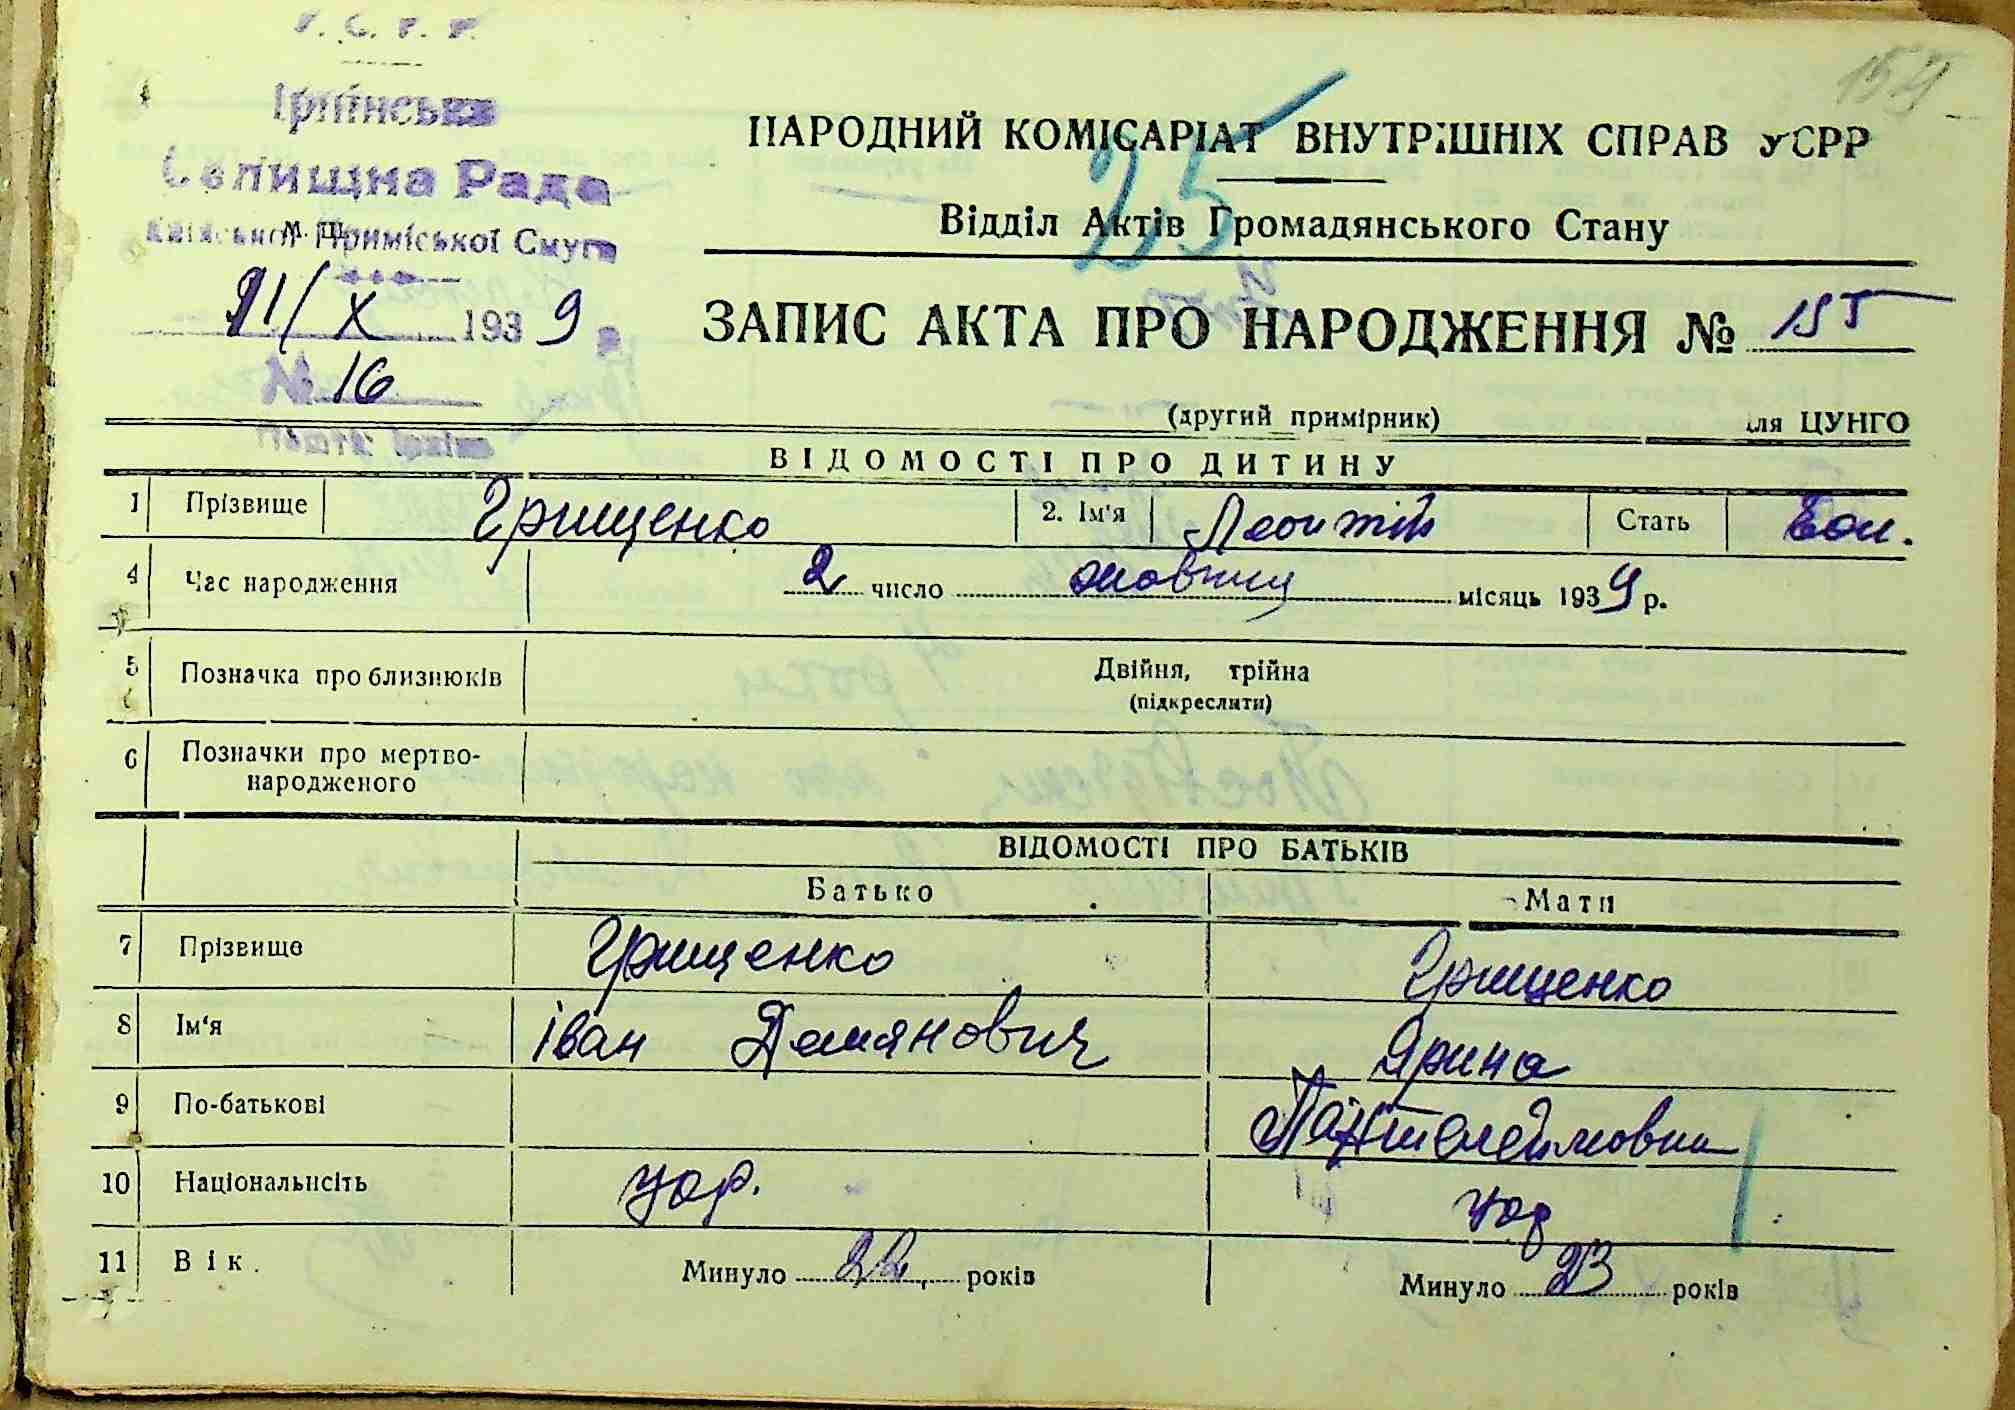 У. С. Р. Р.
Ірпінська
Селищна Рада
м. п.
Київської Приміської Смуги
11/X 1939
№ 16
Пошта Ірпінь
25
НАРОДНИЙ КОМІСАРІАТ ВНУТРІШНІХ СПРАВ УСРР
Відділ Актів Громадянського Стану
ЗАПИС АКТА ПРО НАРОДЖЕННЯ № 155
(другий примірник) для ЦУНГО
ВІДОМОСТІ ПРО ДИТИНУ
1 Прізвище Грищенко 2. Ім'я Леонтій Стать
4 Час народження 2 число жовтня місяць 1939 р.
5 Позначка про близнюків Двійня, трійна
(підкреслити)
6 Позначки про мертво-
народженого
ВІДОМОСТІ ПРО БАТЬКІВ
Батько Мати
7 Прізвище Грищенко Грищенко
8 Ім'я Іван Демянович Ярина
9 По-батькові Пантелеймовна
10 Національність укр. укр
11 Вік. Минуло 22 років Минуло 23 років